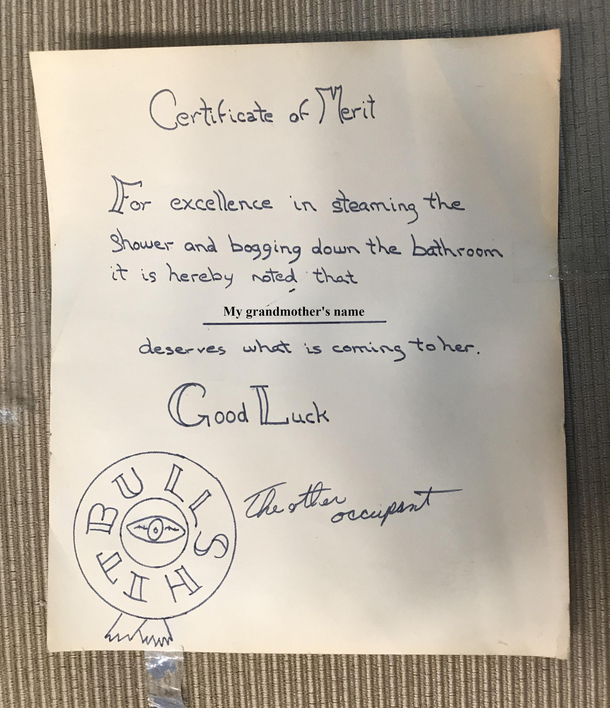 Certificate of Merit
For excellence in steaming the
Shower and bogging down the bathroom
it is hereby noted that
My grandmother's name
deserves what is coming to her.
Good Luck
BULLSHIT
The other
occupant